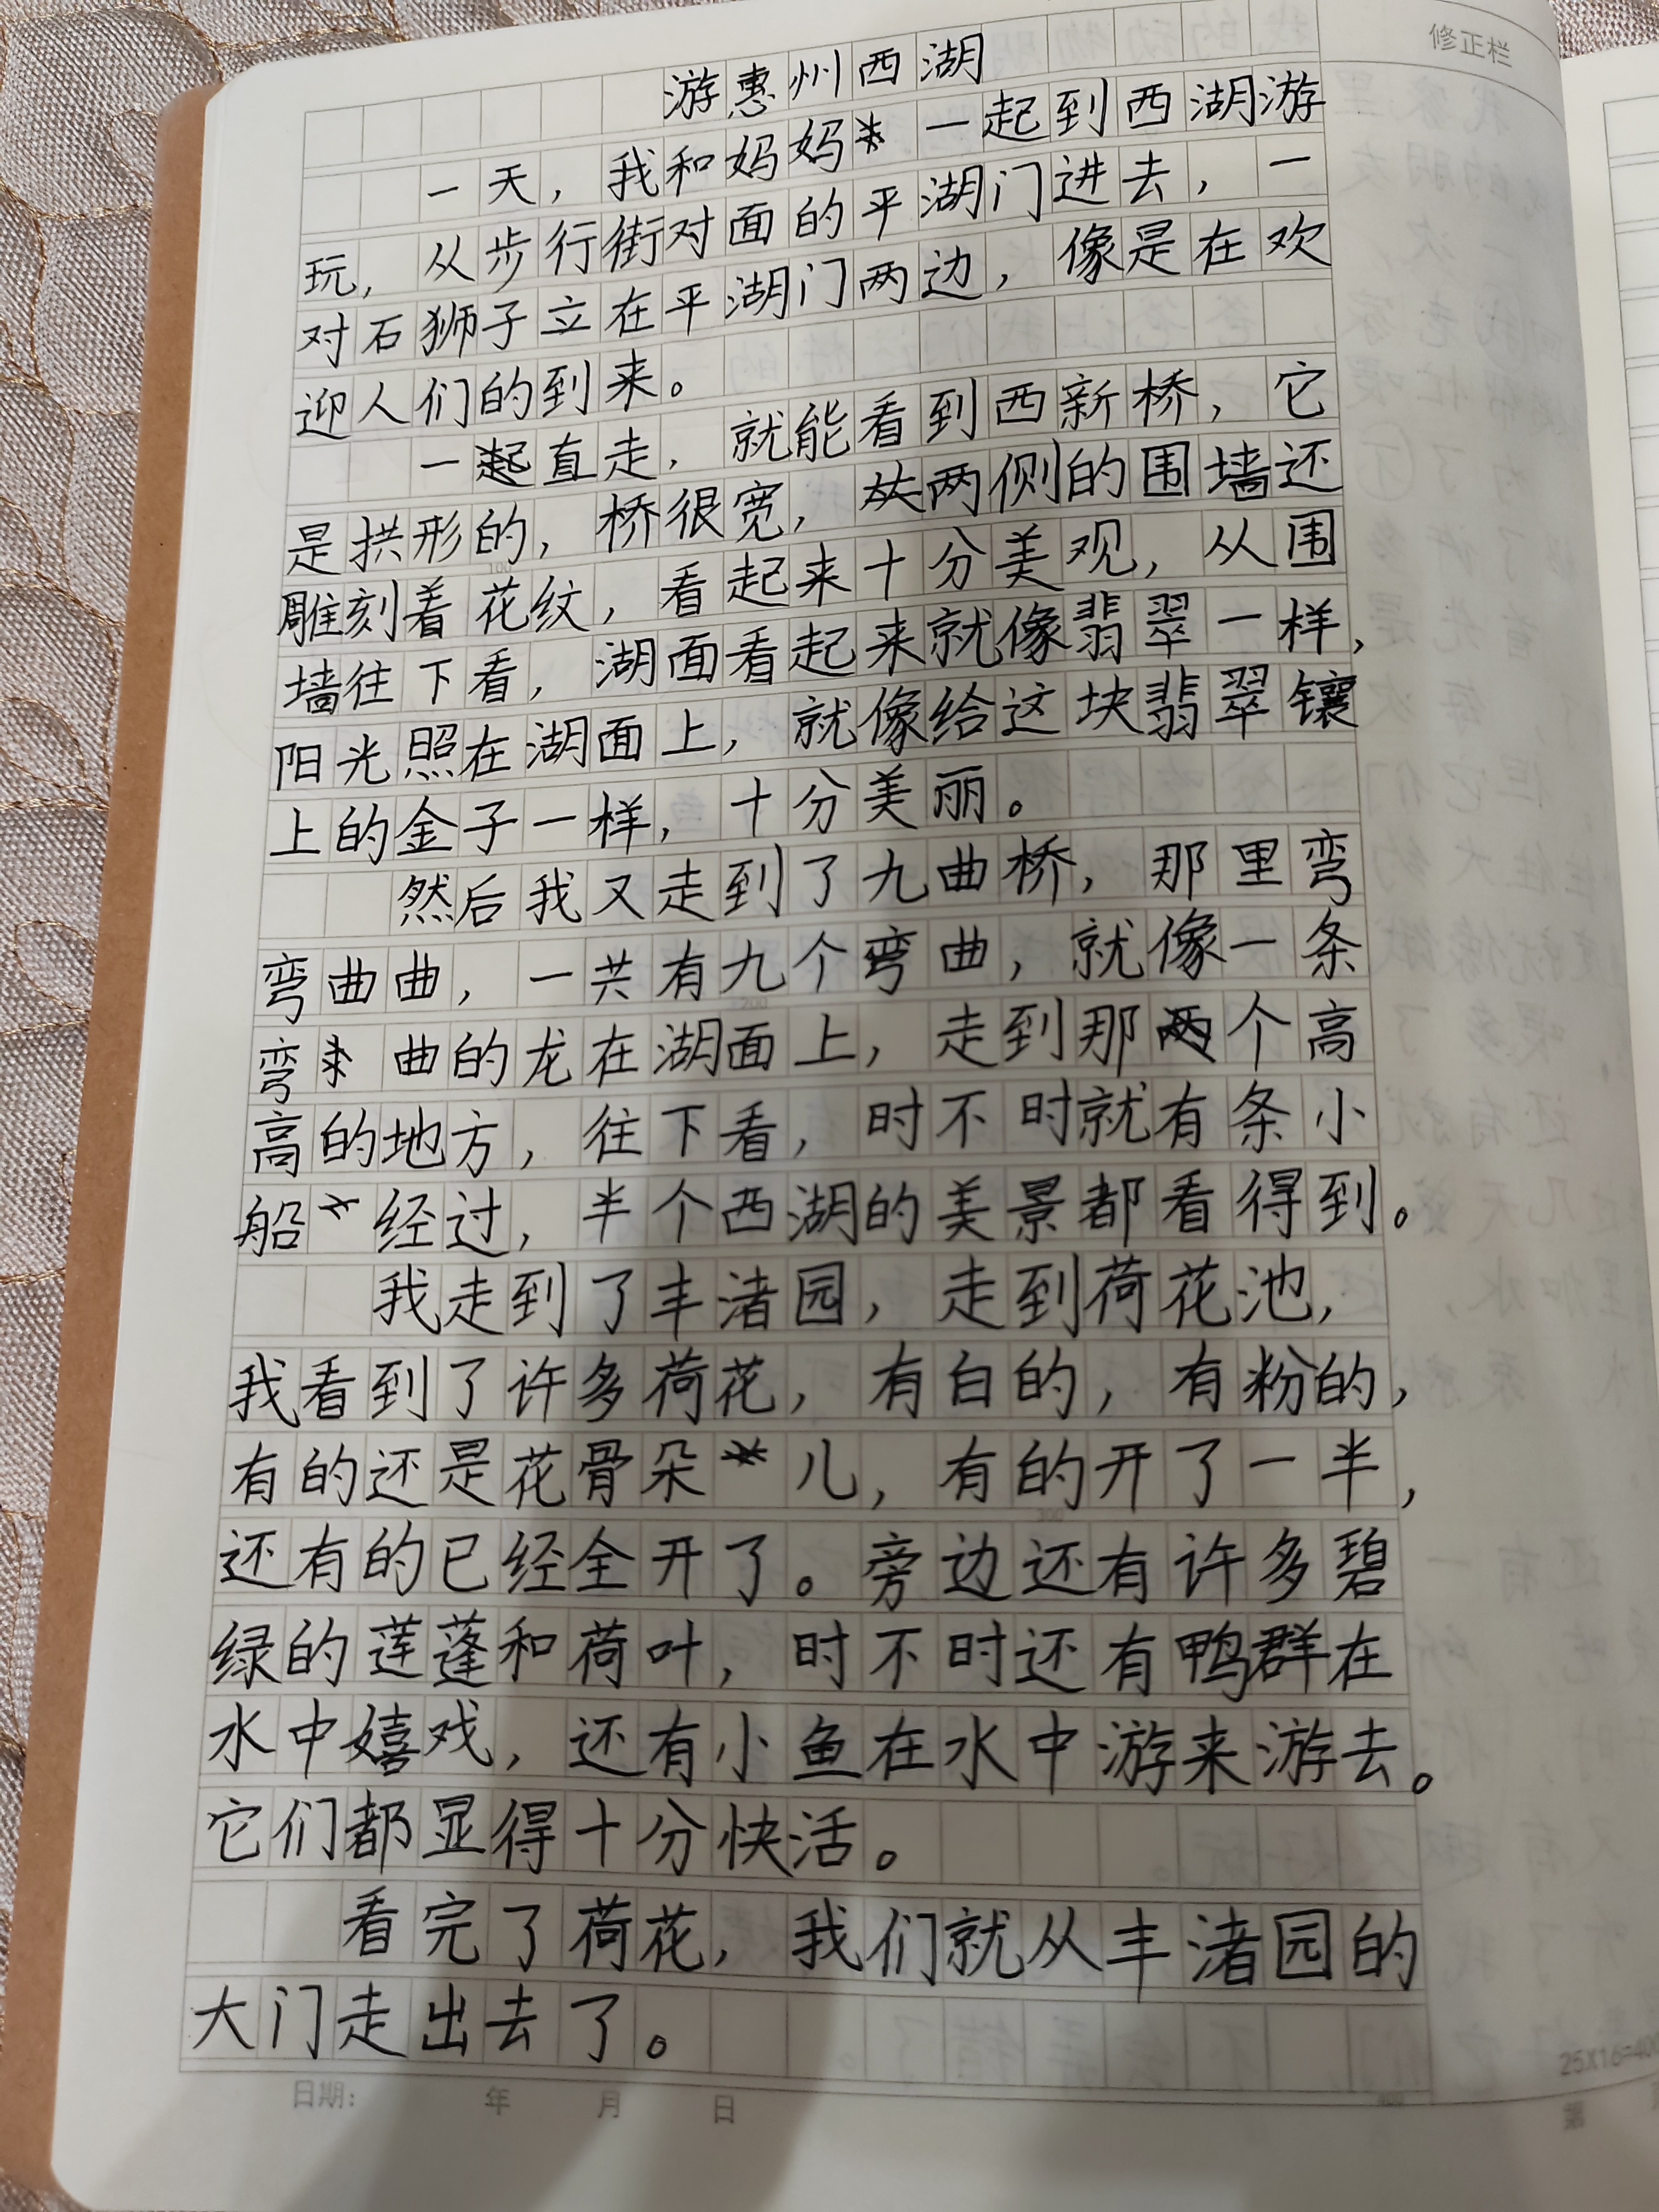 修正栏
游惠州西湖
一天，我和妈妈一起到西湖游
玩，从步行街对面的平湖门进去，一
对石狮子立在平湖门两边，像是在欢
迎人们的到来。
一直走，就能看到西新桥，它
是拱形的，桥很宽，两侧的围墙还
雕刻着花纹，看起来十分美观，从围
墙往下看，湖面看起来就像翡翠一样，
阳光照在湖面上，就像给这块翡翠镶
上的金子一样，十分美丽。
然后我又走到了九曲桥，那里弯
弯曲曲，一共有九个弯曲，就像一条
弯曲的龙在湖面上，走到那个高
高的地方，往下看，时不时就有条小
船经过，半个西湖的美景都看得到。
我走到了丰渚园，走到荷花池，
我看到了许多荷花，有白的，有粉的，
有的还是花骨朵儿，有的开了一半，
还有的已经全开了。旁边还有许多碧
绿的莲蓬和荷叶，时不时还有鸭群在
水中嬉戏，还有小鱼在水中游来游去。
它们都显得十分快活。
看完了荷花，我们就从丰渚园的
大门走出去了。
日期： 年 月 日
25X16=400